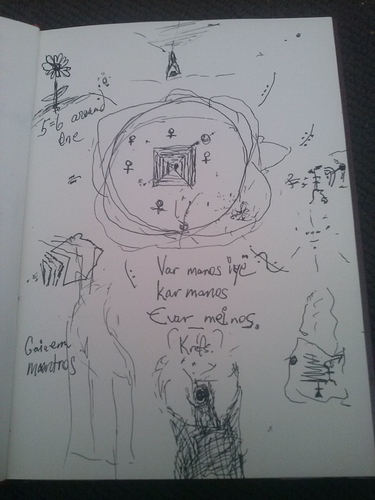 5=6 around
one
Var manos "ïë"
kar manos
Evar meinos.
Krefs.
Gaiem
maentros